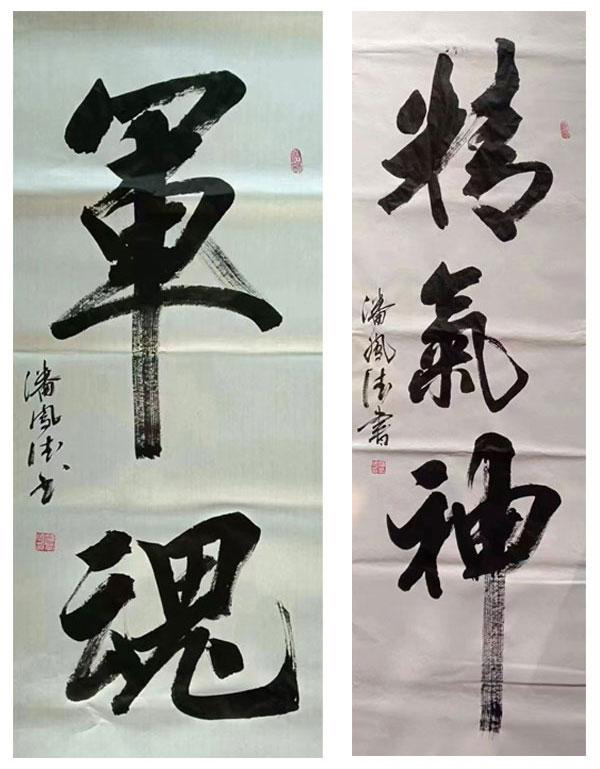 軍魂
潘凤德书
精氣神
潘凤德書